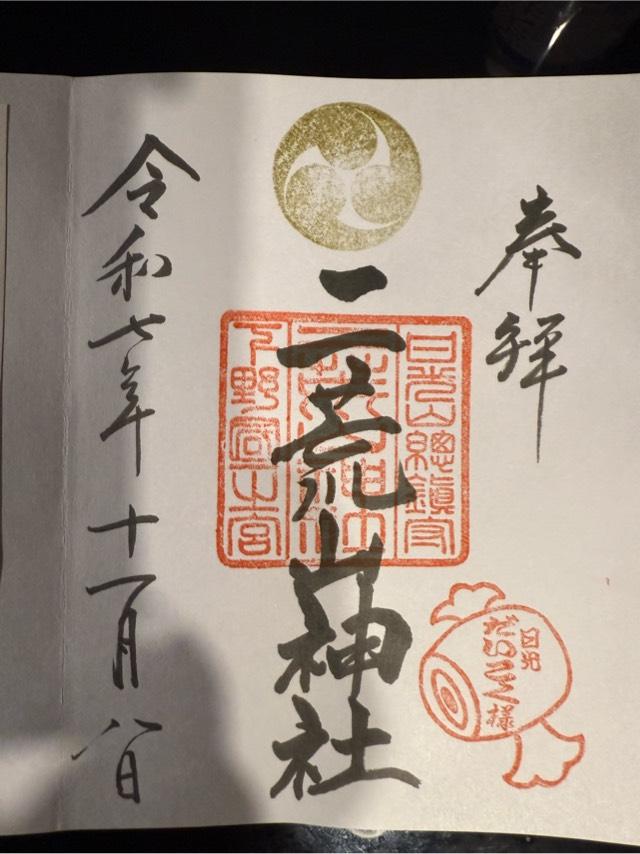 奉拝
日光山總鎮守
二荒山神社
下野国一之宮
二荒山神社
日光
だいこく様
令和七年十一月八日